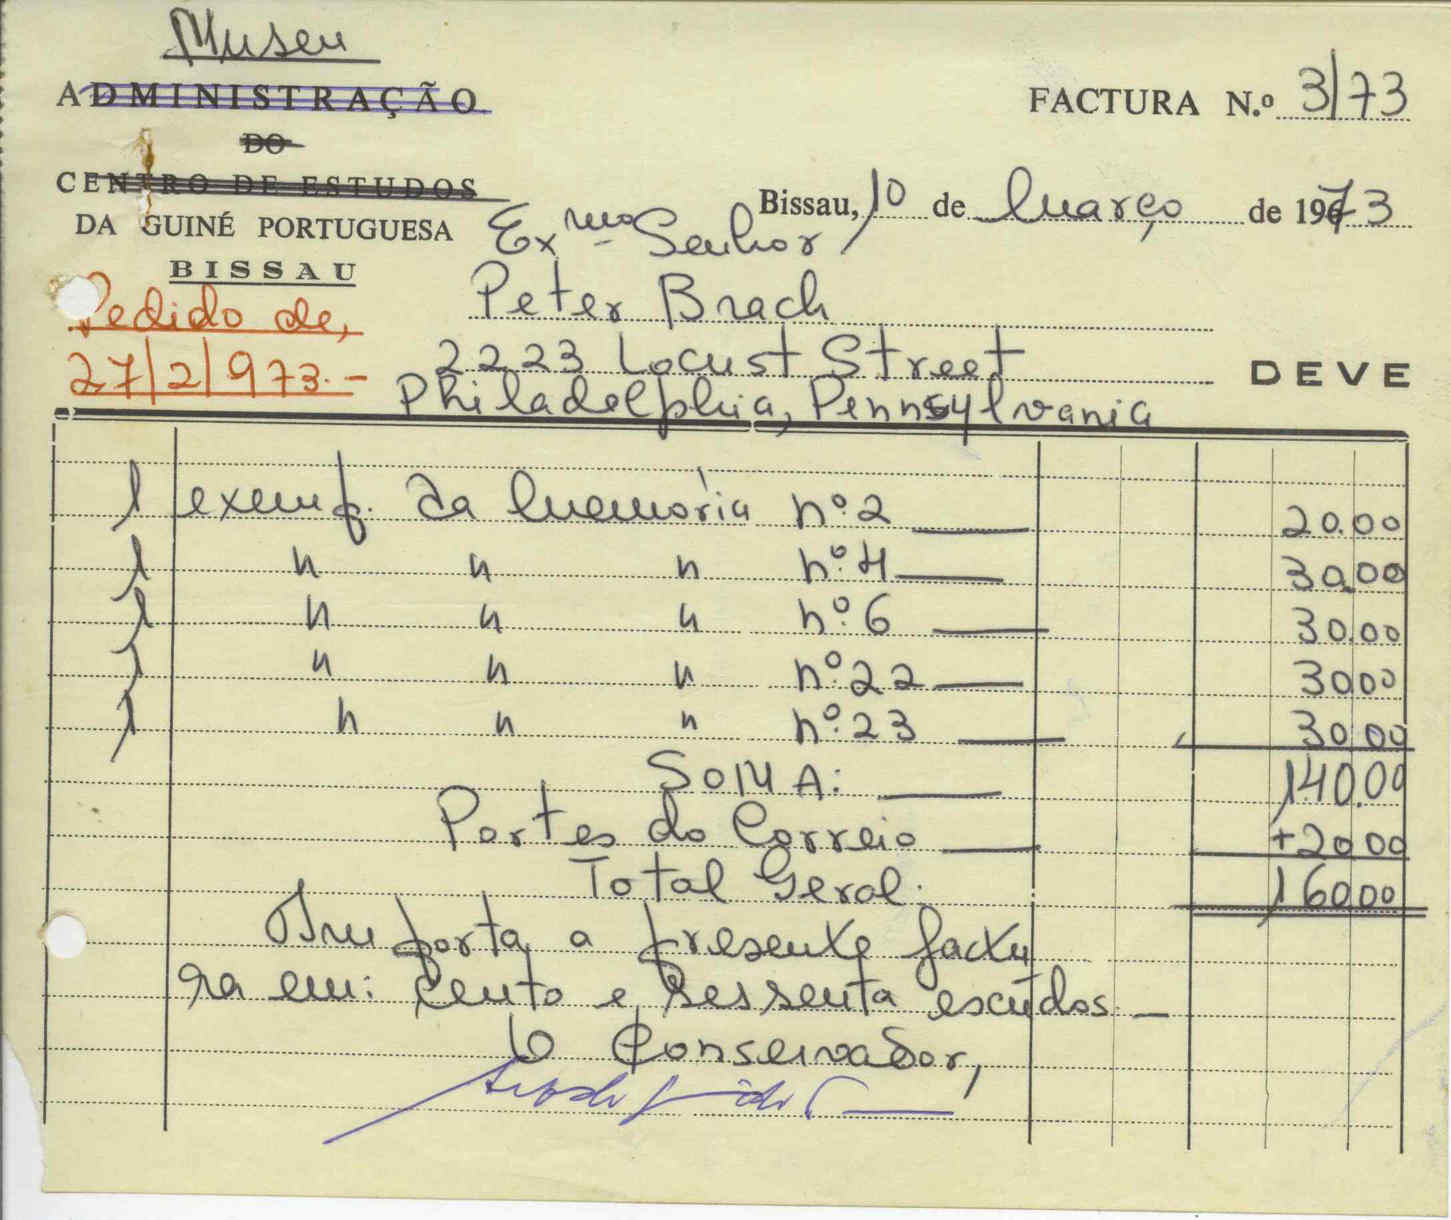 Museu
ADMINISTRAÇÃO
DO
CENTRO DE ESTUDOS
DA GUINÉ PORTUGUESA
BISSAU
FACTURA N.º 3/73
Bissau, 10 de Março de 1973
Pedido de,
27/2/973.-
Exmo Senhor
Peter Brach
2223 Locust Street
Philadelphia, Pennsylvania
DEVE
1 exemp. da Memória nº 2 20.00
1 " " " nº 4 30.00
1 " " " nº 6 30.00
1 " " " nº 22 30.00
1 " " " nº 23 30.00
SOMA: 140.00
Portes do Correio +20.00
Total Geral. 160.00
Importa a presente factu
ra em: Cento e sessenta escudos.—
O Conservador,